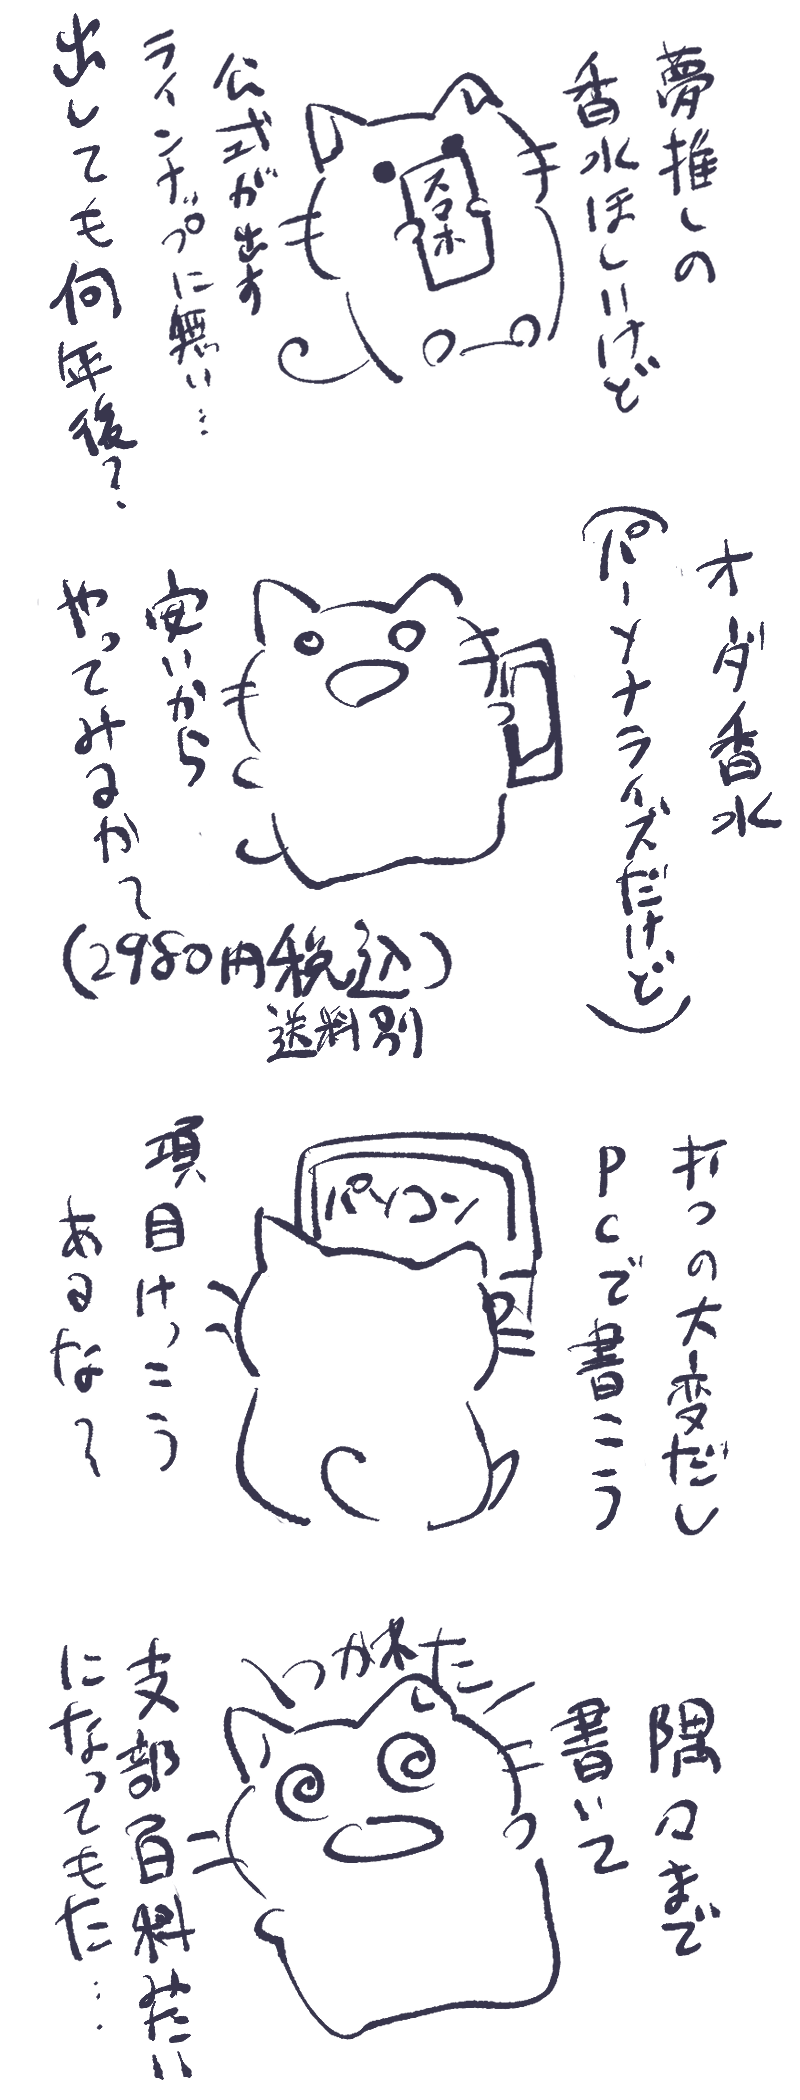 夢推しの
香水ほしいけど
スマホ
公式が出す
ラインナップに無い…
出しても何年後?
オーダー香水
(パーソナライズだけど)
安いから
やってみるかて
(2980円税込)
送料別
打つの大変だし
PCで書こう
パソコン
項目けっこう
あるな〜
隅々まで
書いて
つかれた
支部百科みたい
になってもた…